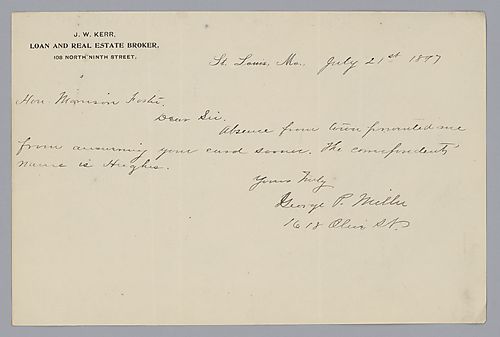 J. W. KERR,
LOAN AND REAL ESTATE BROKER,
108 NORTH NINTH STREET,
St. Louis, Mo., July 21st 1897
Hon. Morrison Foster,
Dear Sir.
Absence from town prevented me
from answering your card sooner. The correspondents'
name is Hughes.
Yours Truly
George P. Miller
1618 Olive St.